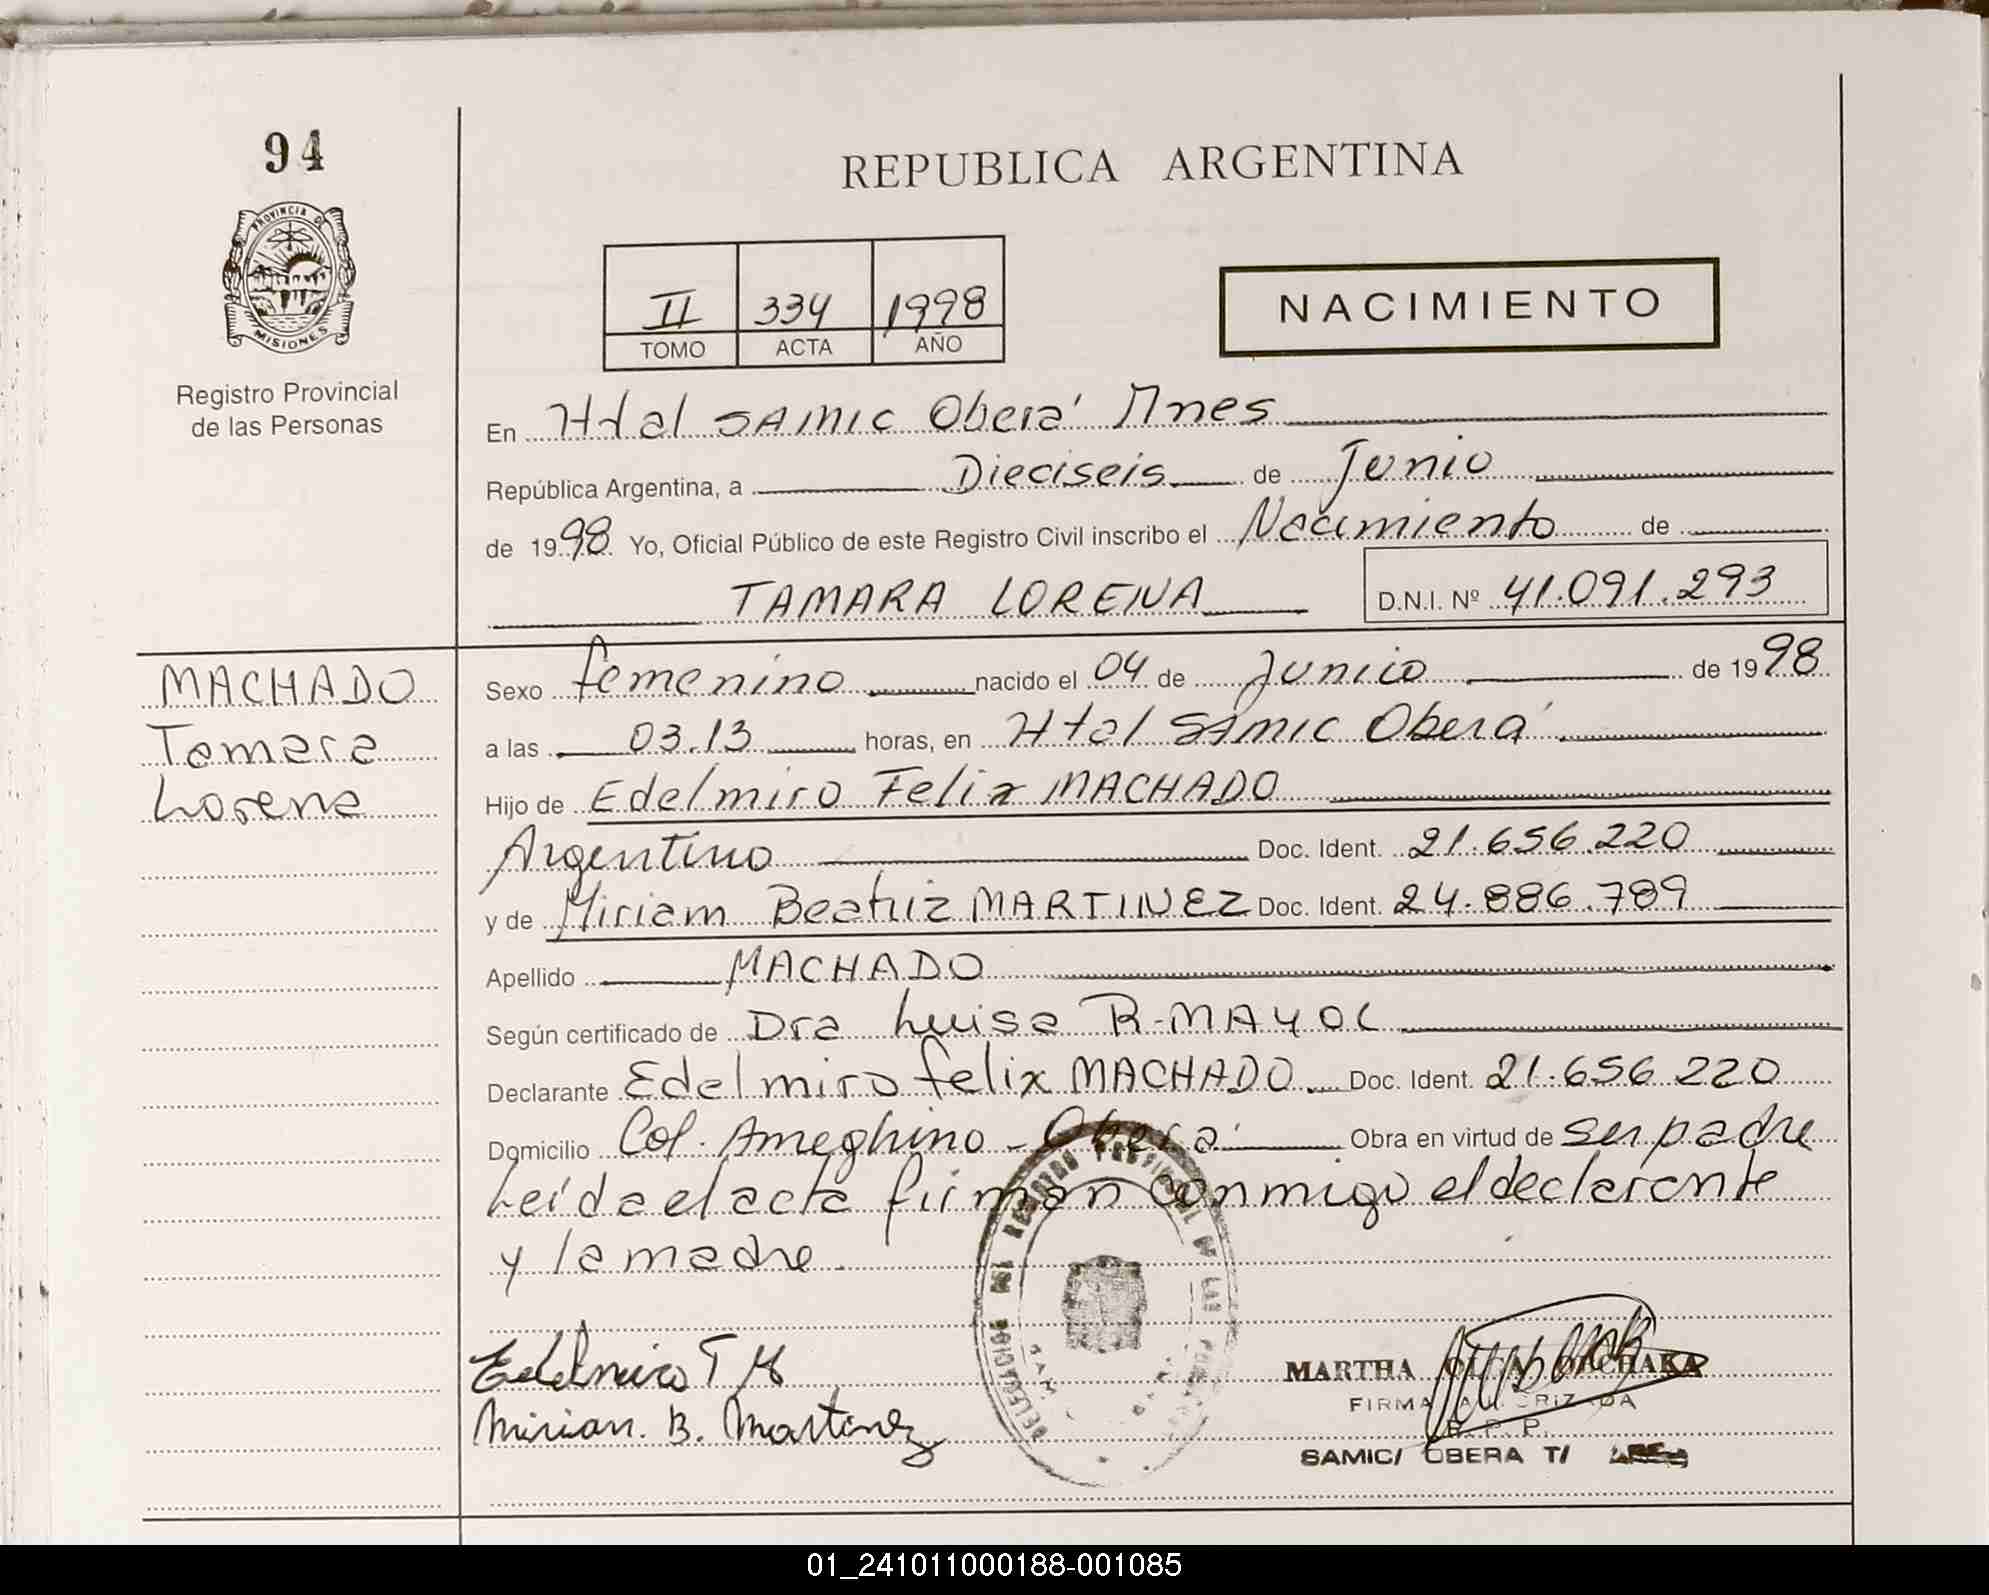 94
REPUBLICA ARGENTINA
PROVINCIA DE
MISIONES
Registro Provincial
de las Personas
II 334 1998
TOMO ACTA AÑO
NACIMIENTO
En Htal SAMIC Oberá Mnes
República Argentina, a Dieciseis de Junio
de 1998. Yo, Oficial Público de este Registro Civil inscribo el Nacimiento de
TAMARA LORENA D.N.I. Nº 41.091.293
MACHADO
Tamara
Lorena
Sexo femenino nacido el 04 de Junio de 1998
a las 03.13 horas, en Htal SAMIC Oberá
Hijo de Edelmiro Felix MACHADO
Argentino Doc. Ident. 21.656.220
y de Miriam Beatriz MARTINEZ Doc. Ident. 24.886.789
Apellido MACHADO
Según certificado de Dra Luisa R. MAYOL
Declarante Edelmiro felix MACHADO Doc. Ident. 21.656 220
Domicilio Col. Ameghino - Oberá Obra en virtud de ser padre
Leída el acta firman conmigo el declarante
y la madre.
DELEGACION DEL REGISTRO PROVINCIAL DE LAS PERSONAS
Edelmiro F M
Mirian. B. Martinez
MARTHA OLGA
FIRMA AUTORIZADA
R. P. P.
SAMIC/ OBERA T/
01_241011000188-001085